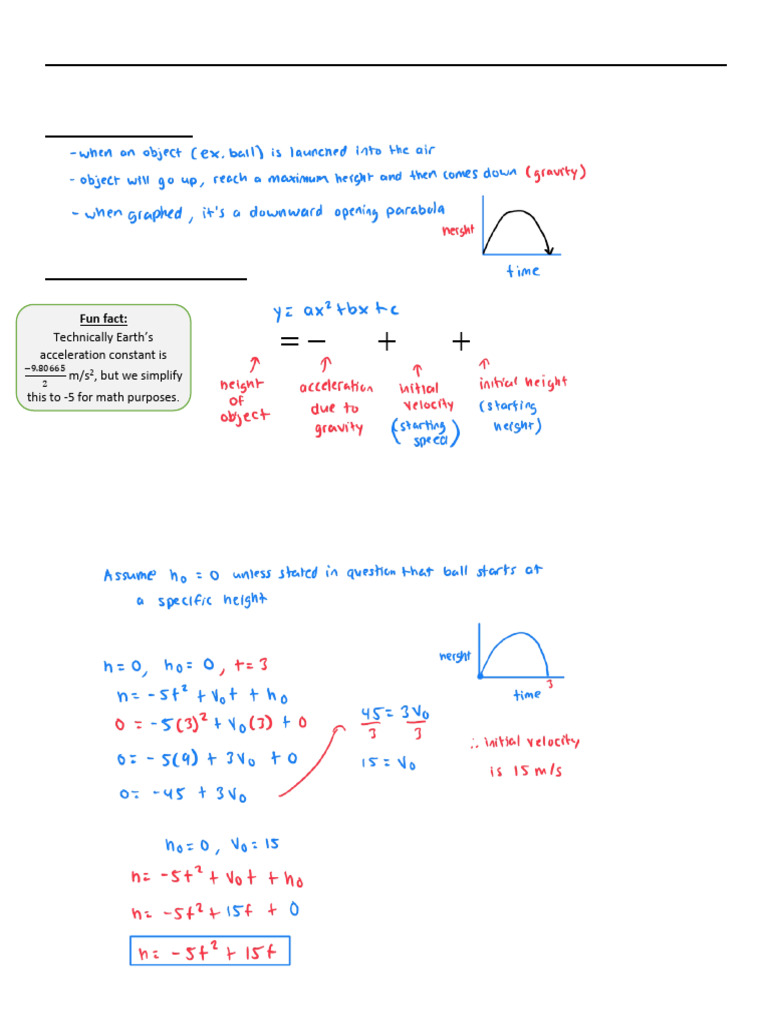 - when an object (ex. ball) is launched into the air
- object will go up, reach a maximum height and then comes down (gravity)
- when graphed, it's a downward opening parabola
height
time
Fun fact:
Technically Earth's
acceleration constant is
−9.80665/2 m/s², but we simplify
this to -5 for math purposes.
y = ax² + bx + c
= − + +
height of object
acceleration due to gravity
initial velocity (starting speed)
initial height (starting height)
Assume h₀ = 0 unless stated in question that ball starts at
a specific height
h=0, h₀=0, t=3
h= -5t² + V₀t + h₀
0 = -5(3)² + V₀(3) + 0
0= -5(9) + 3V₀ + 0
0= -45 + 3V₀
45 = 3V₀
3 3
15 = V₀
height
3
time
∴ initial velocity
is 15 m/s
h₀=0, V₀=15
h= -5t² + V₀t + h₀
h= -5t² + 15t + 0
h= -5t² + 15t